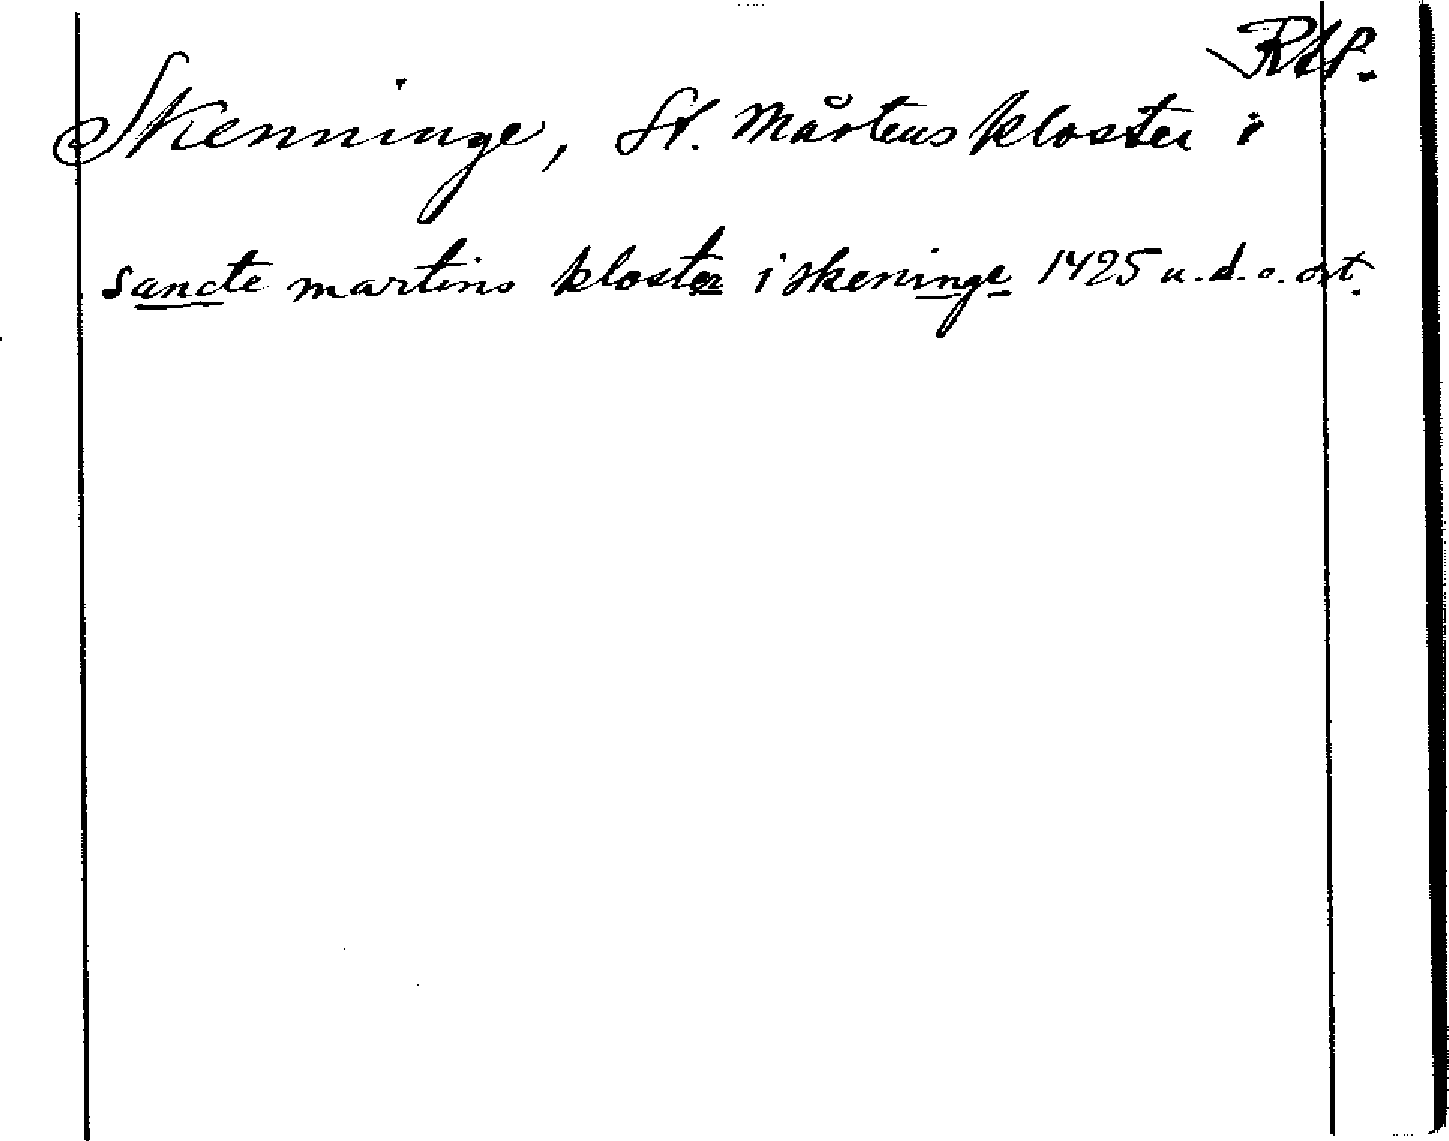 RAP.
Skenninge, St. Mårtens kloster i
sancte martins kloster i skeninge 1425 u.d.o. ort.